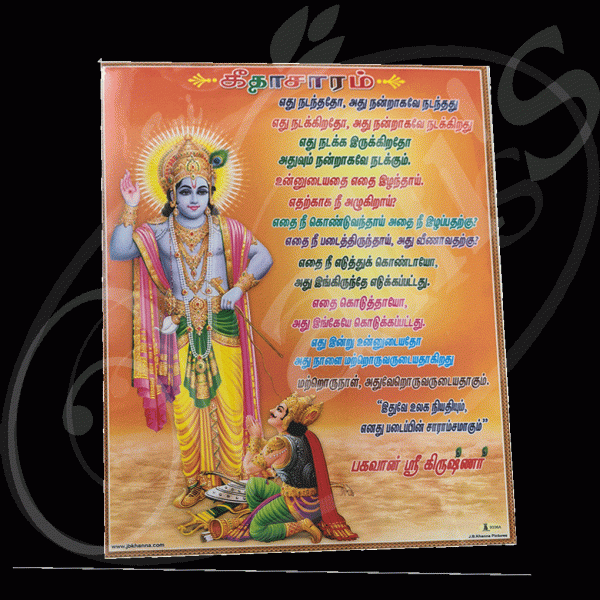 கீதாசாரம்
எது நடந்ததோ, அது நன்றாகவே நடந்தது
எது நடக்கிறதோ, அது நன்றாகவே நடக்கிறது
எது நடக்க இருக்கிறதோ
அதுவும் நன்றாகவே நடக்கும்.
உன்னுடையதை எதை இழந்தாய்.
எதற்காக நீ அழுகிறாய்?
எதை நீ கொண்டுவந்தாய் அதை நீ இழப்பதற்கு?
எதை நீ படைத்திருந்தாய், அது வீணாவதற்கு?
எதை நீ எடுத்துக் கொண்டாயோ,
அது இங்கிருந்தே எடுக்கப்பட்டது.
எதை கொடுத்தாயோ,
அது இங்கேயே கொடுக்கப்பட்டது.
எது இன்று உன்னுடையதோ
அது நாளை மற்றொருவருடையதாகிறது
மற்றொருநாள், அதுவேறொருவருடையதாகும்.
"இதுவே உலக நியதியும்,
எனது படைப்பின் சாராம்சமாகும்"
பகவான் ஸ்ரீ கிருஷ்ணர்
www.jbkhanna.com
J.B.Khanna Pictures